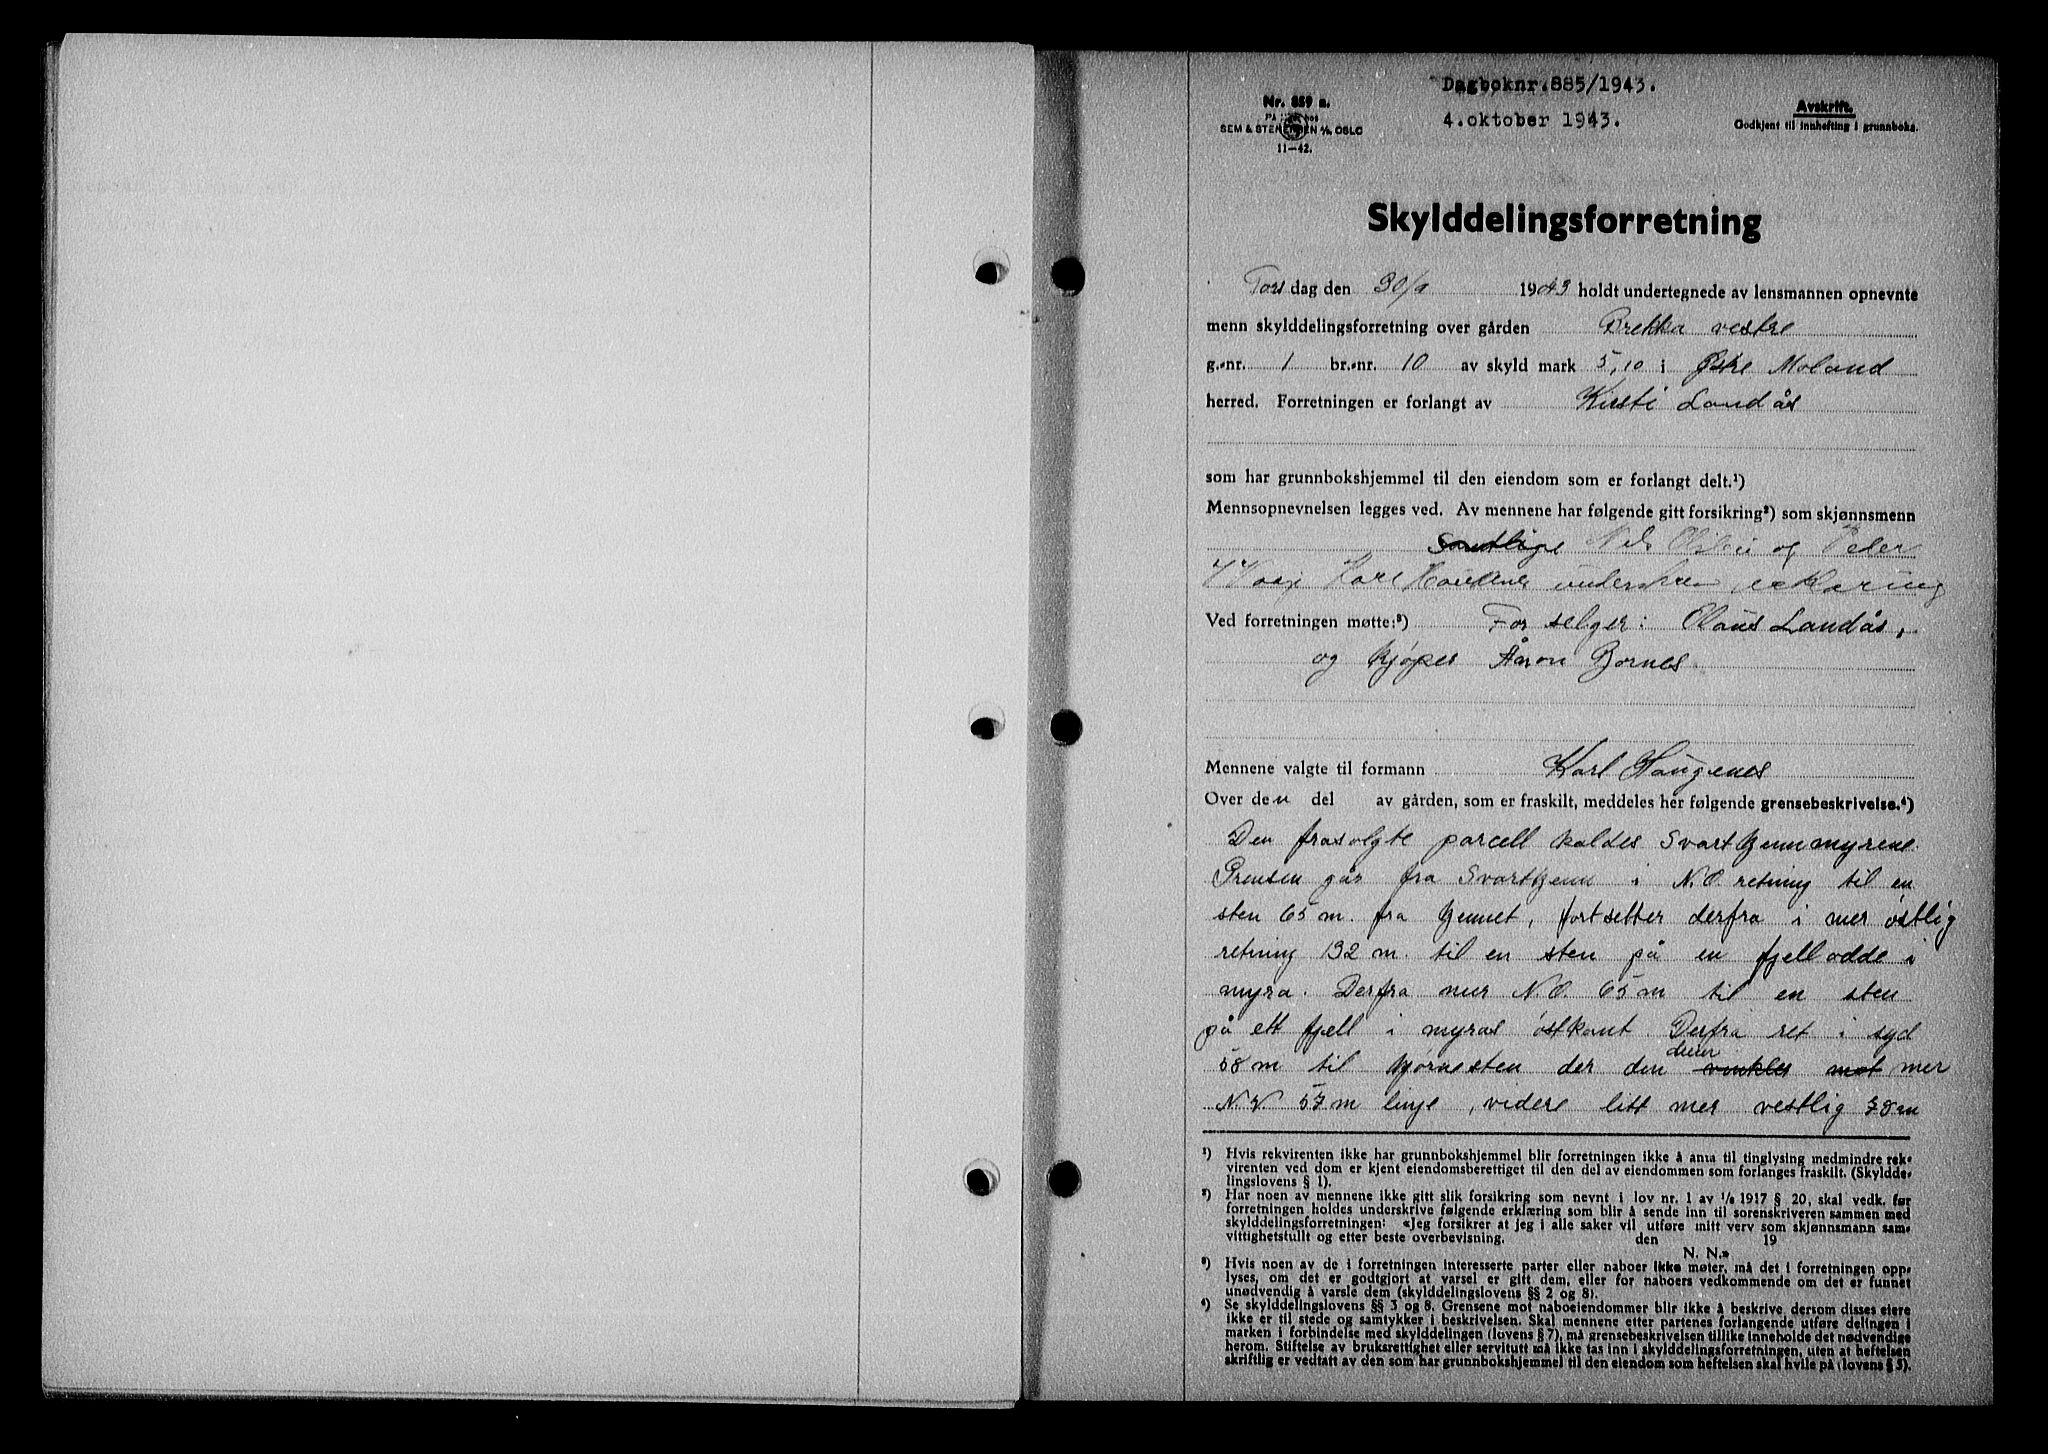 Dagboknr.885/1943.
4.oktober 1943.
Nr. 859 a.
SEM & STENERSEN A/S OSLO
11-42.
Avskrift.
Godkjent til innhefting i grunnboka.
Skylddelingsforretning
Torsdag den 30/9 1943 holdt undertegnede av lensmannen opnevnte
menn skylddelingsforretning over gården Brekka vestre
g.-nr. 1 br.-nr. 10 av skyld mark 5,10 i Østre Moland
herred. Forretningen er forlangt av Kirsti Landås
som har grunnbokshjemmel til den eiendom som er forlangt delt.¹)
Mennsopnevnelsen legges ved. Av mennene har følgende gitt forsikring²) som skjønnsmenn
Samtlige Nels Olsen og Peter
Karl Haugenes underskrev erklæring
Ved forretningen møtte:³) For selger: Olaus Landås,
og kjøper Åron Bornes.
Mennene valgte til formann Karl Haugenes
Over den del av gården, som er fraskilt, meddeles her følgende grensebeskrivelse.⁴)
Den frasolgte parcell kaldes Svartkjennmyrene.
Grensen går fra Svartkjenn i N.O. retning til en
sten 65 m. fra kjennet, fortsetter derfra i mer østlig
retning 132 m. til en sten på en fjellodde i
myra. Derfra mer N.O. 65 m til en sten
på ett fjell i myras østkant. Derfra ret i syd
58 m til hjørnesten der den dreier vinkler mot mer
N.V. 57 m linje, videre litt mer vestlig 78 m
¹) Hvis rekvirenten ikke har grunnbokshjemmel blir forretningen ikke å anta til tinglysing medmindre rek-
virenten ved dom er kjent eiendomsberettiget til den del av eiendommen som forlanges fraskilt. (Skyldde-
lingslovens § 1).
²) Har noen av mennene ikke gitt slik forsikring som nevnt i lov nr. 1 av 1/6 1917 § 20, skal vedk. før
forretningen holdes underskrive følgende erklæring som blir å sende inn til sorenskriveren sammen med
skylddelingsforretningen: «Jeg forsikrer at jeg i alle saker vil utføre mitt verv som skjønnsmann sam-
vittighetsfullt og etter beste overbevisning. den 19
N. N.»
³) Hvis noen av de i forretningen interesserte parter eller naboer ikke møter, må det i forretningen opp-
lyses, om det er godtgjort at varsel er gitt dem, eller for naboers vedkommende om det er funnet
unødvendig å varsle dem (skylddelingslovens §§ 2 og 8).
⁴) Se skylddelingslovens §§ 3 og 8. Grensene mot naboeiendommer blir ikke å beskrive, dersom disses eiere
ikke er til stede og samtykker i beskrivelsen. Skal mennene etter partenes forlangende utføre delingen i
marken i forbindelse med skylddelingen (lovens § 7), må grensebeskrivelsen tillike inneholde det nødvendige
herom. Stiftelse av bruksrettighet eller servitutt må ikke tas inn i skylddelingsforretningen, uten at heftelsen
skriftlig er vedtatt av den som har grunnbokshjemmel til den eiendom som heftelsen skal hvile på (lovens § 5).